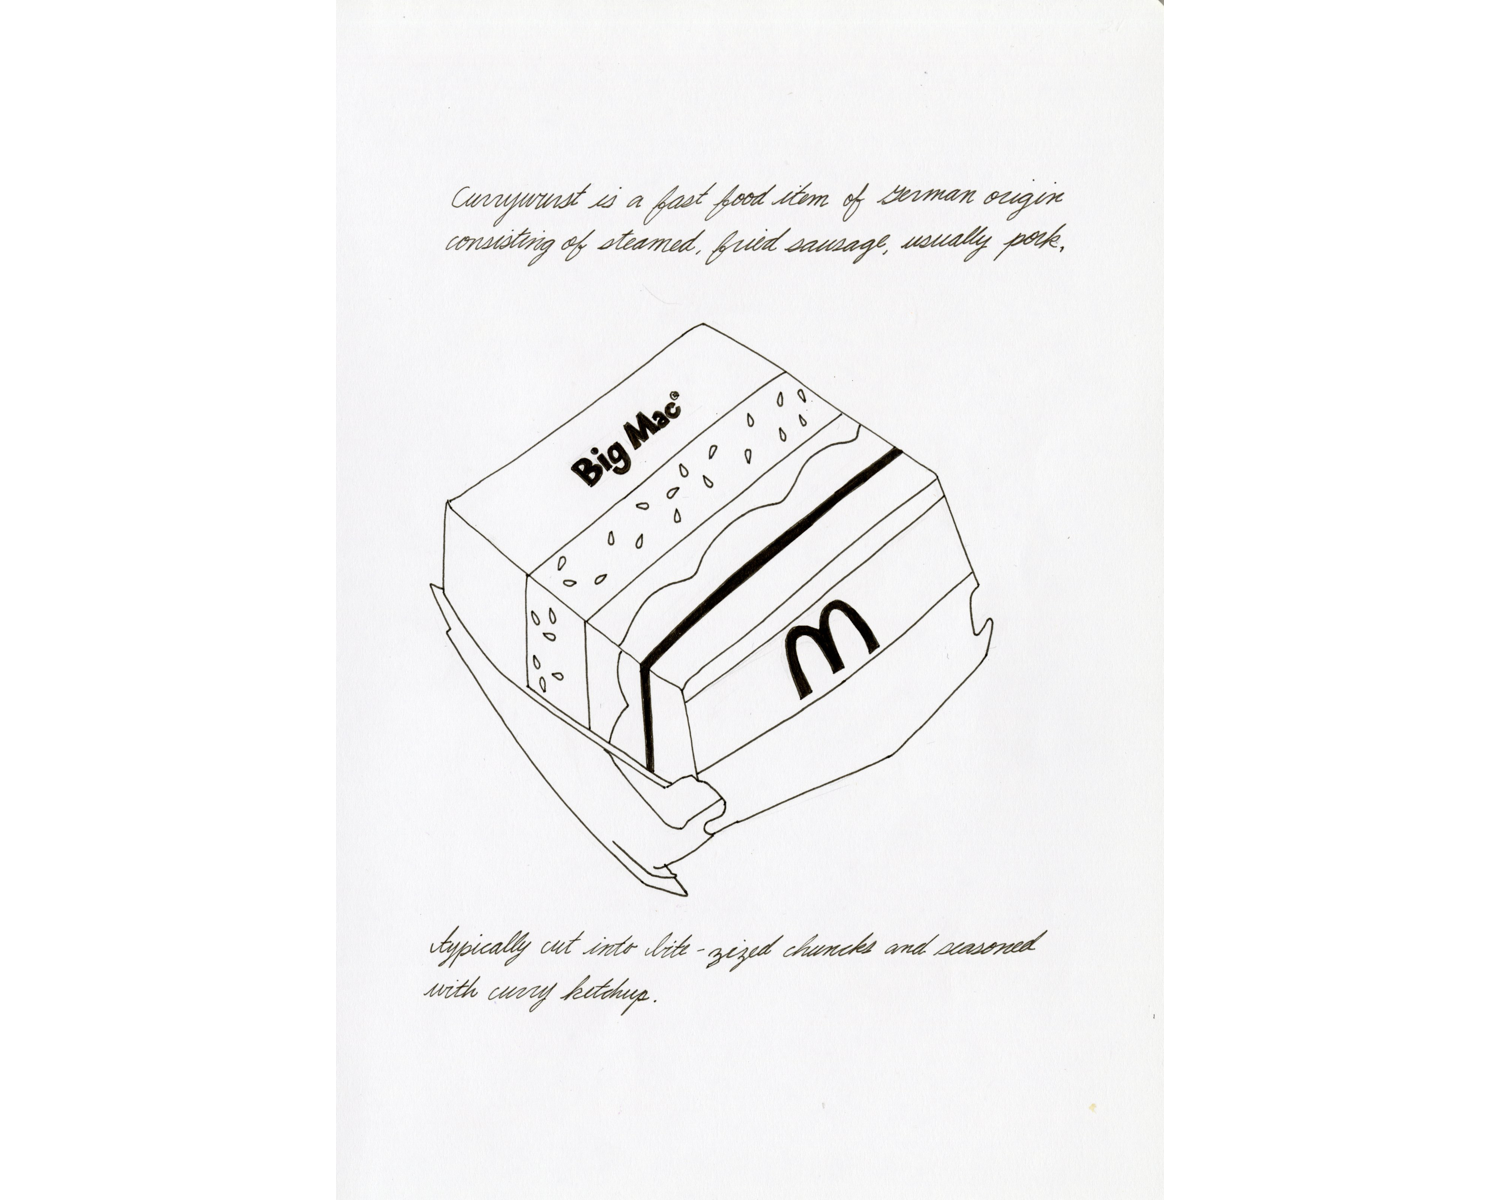 Currywurst is a fast food item of German origin
consisting of steamed, fried sausage, usually pork,
Big Mac®
M
typically cut into bite-zized chuncks and seasoned
with curry ketchup.